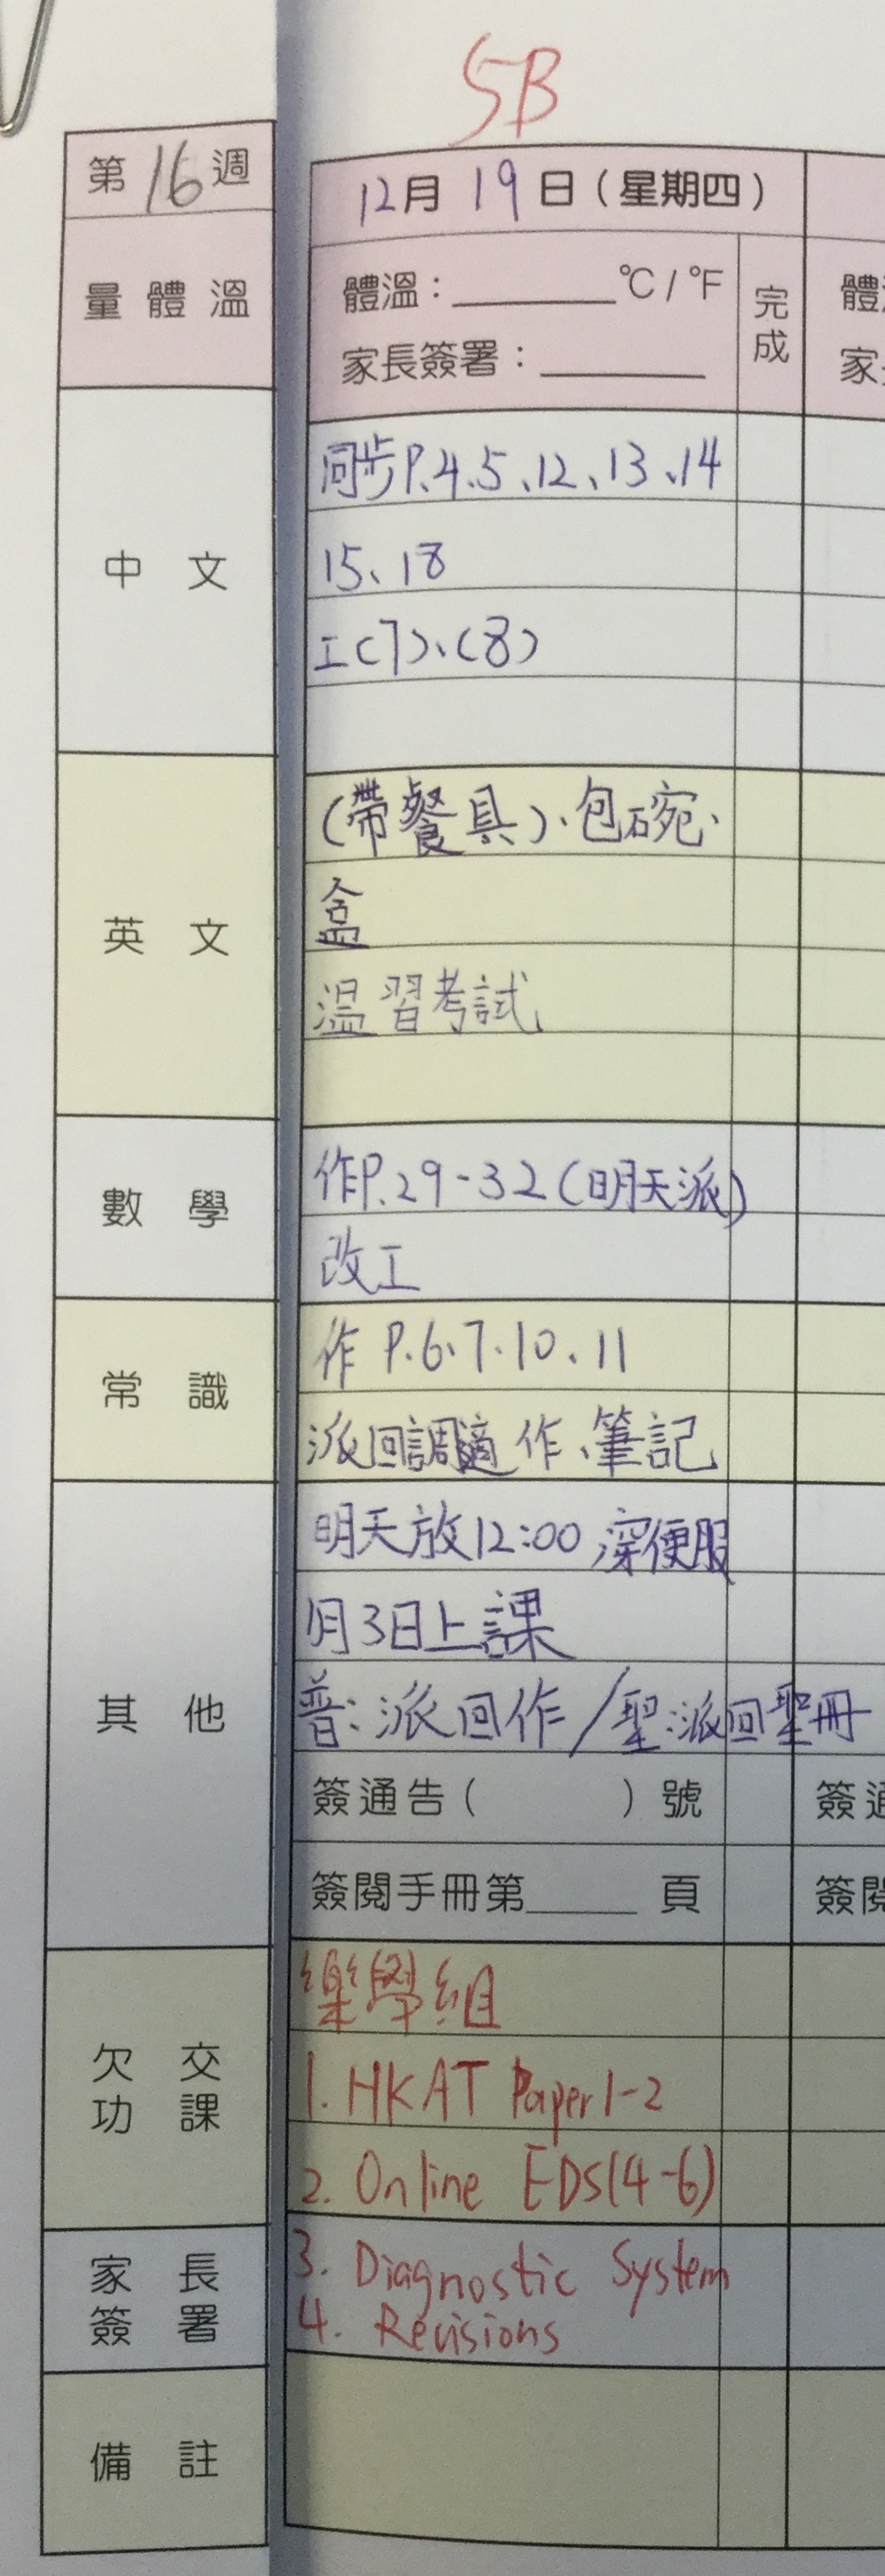 5B
第16週
12月19日(星期四)
量體溫
體溫：______°C/°F
家長簽署：______
完成
體
家
中文
同步P.4、5、12、13、14
15、18
工(7)、(8)
英文
(帶餐具)、包碗、
盒
溫習考試
數學
作P.29-32(明天派)
改工
常識
作 P.6、7、10、11
派回調適作、筆記
其他
明天放12:00 深便服
1月3日上課
普：派回作/聖：派回聖冊
簽通告(　　　)號
簽通
簽閱手冊第____頁
簽閱
欠交功課
樂學組
1. HKAT Paper 1-2
2. Online EDS(4-6)
家長簽署
3. Diagnostic System
4. Revisions
備註